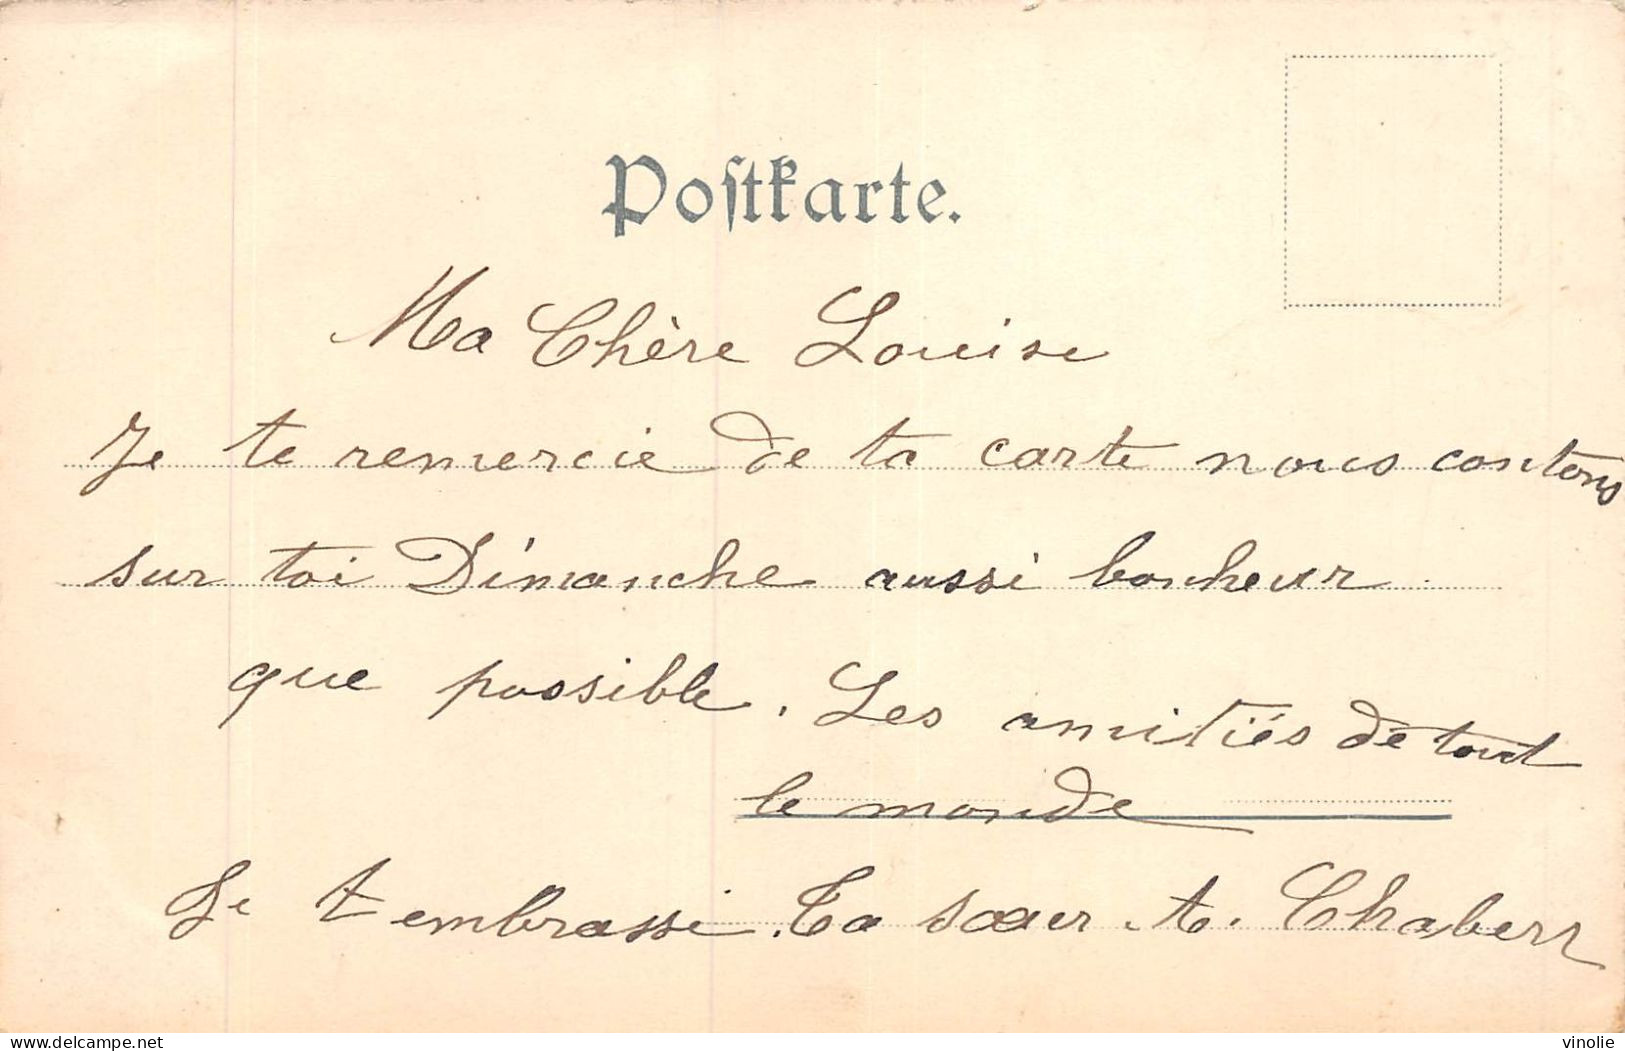 Postkarte.
Ma Chère Louise
Je te remercie de ta carte nous contons
sur toi Dimanche aussi bonheur
que possible. Les amitiés de tout
le monde
Je t embrasse. Ta sœur A. Chabert
delcampe.net
vinolie